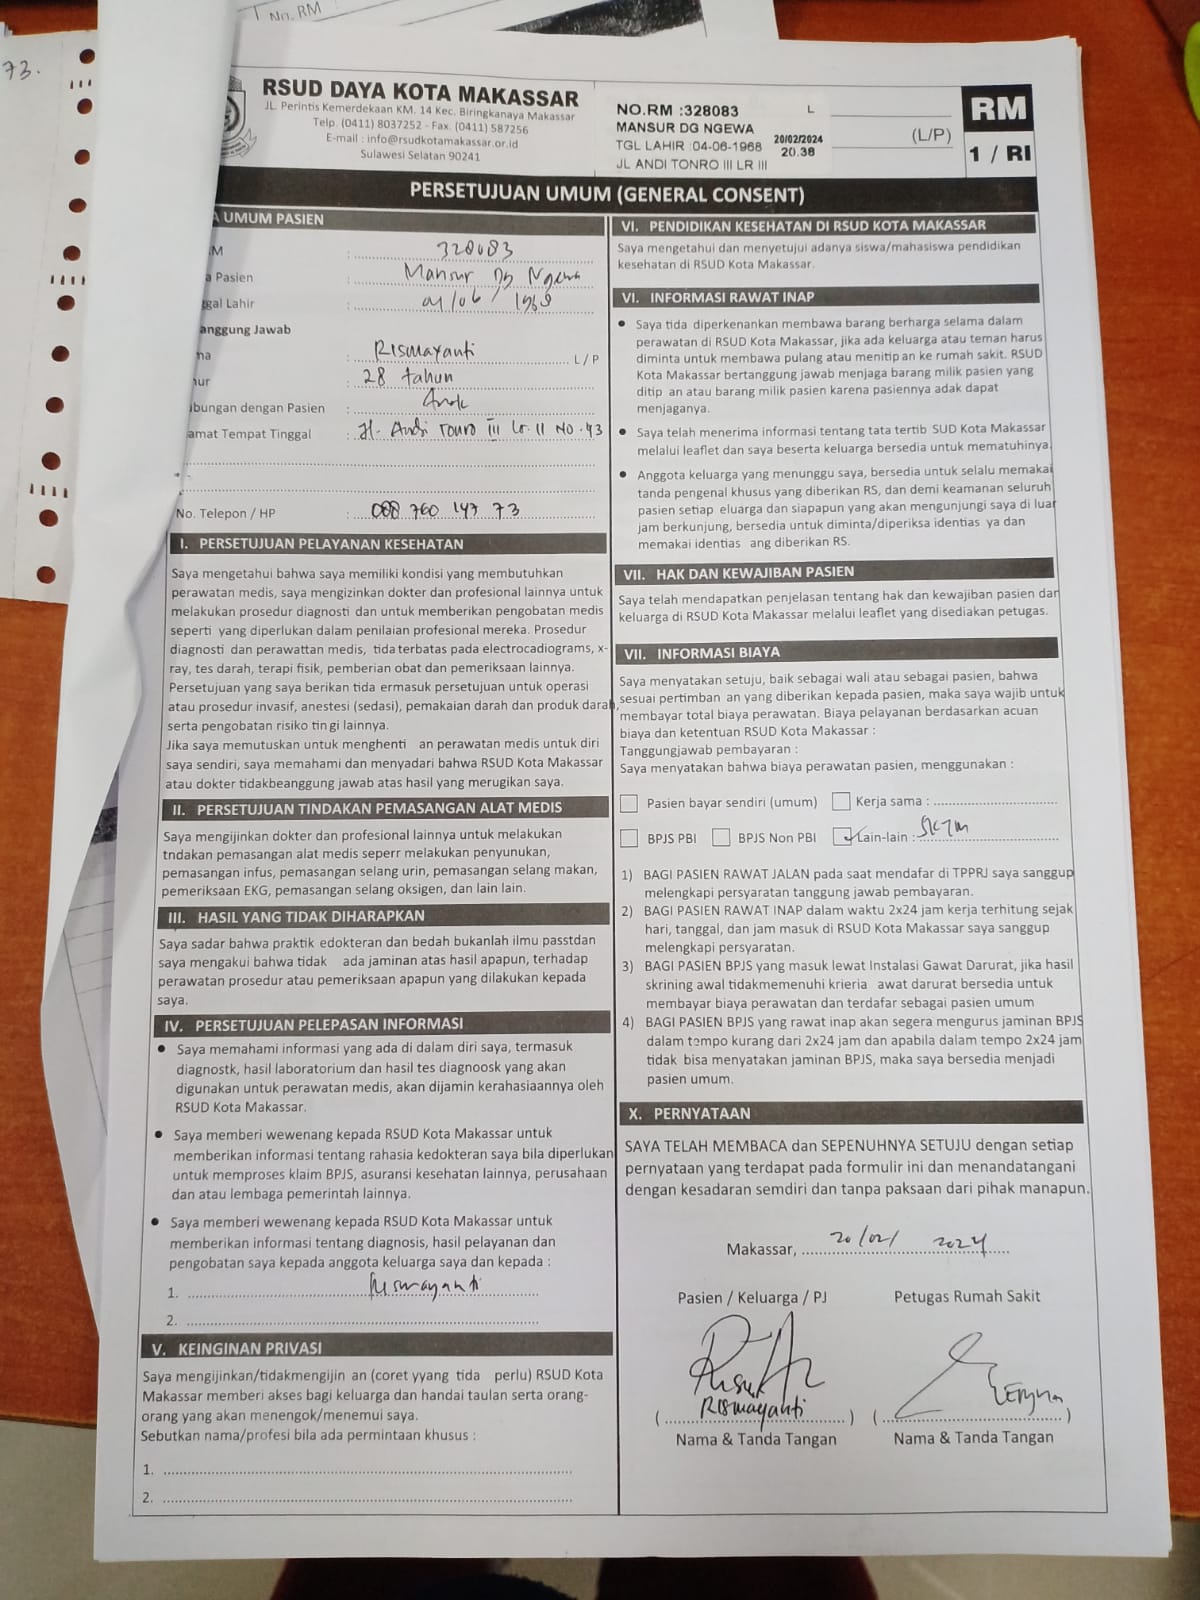 73.
No. RM
RSUD DAYA KOTA MAKASSAR
JL. Perintis Kemerdekaan KM. 14 Kec. Biringkanaya Makassar
Telp. (0411) 8037252 - Fax. (0411) 587256
E-mail : info@rsudkotamakassar.or.id
Sulawesi Selatan 90241
NO.RM :328083 L
MANSUR DG NGEWA
TGL LAHIR :04-06-1968 20/02/2024
20.38
JL ANDI TONRO III LR III
(L/P)
RM
1 / RI
PERSETUJUAN UMUM (GENERAL CONSENT)
A UMUM PASIEN
M : 328083
a Pasien : Mansur Dg Ngewa
gal Lahir : 04/06/1968
anggung Jawab
na : Rismayanti L/P
ur : 28 tahun
bungan dengan Pasien : Anak
amat Tempat Tinggal : Jl. Andi Tonro III Lr. II No. 43
No. Telepon / HP : 088 760 147 73
I. PERSETUJUAN PELAYANAN KESEHATAN
Saya mengetahui bahwa saya memiliki kondisi yang membutuhkan
perawatan medis, saya mengizinkan dokter dan profesional lainnya untuk
melakukan prosedur diagnosti dan untuk memberikan pengobatan medis
seperti yang diperlukan dalam penilaian profesional mereka. Prosedur
diagnosti dan perawattan medis, tida terbatas pada electrocadiograms, x-
ray, tes darah, terapi fisik, pemberian obat dan pemeriksaan lainnya.
Persetujuan yang saya berikan tida ermasuk persetujuan untuk operasi
atau prosedur invasif, anestesi (sedasi), pemakaian darah dan produk darah,
serta pengobatan risiko tin gi lainnya.
Jika saya memutuskan untuk menghenti an perawatan medis untuk diri
saya sendiri, saya memahami dan menyadari bahwa RSUD Kota Makassar
atau dokter tidakbeanggung jawab atas hasil yang merugikan saya.
II. PERSETUJUAN TINDAKAN PEMASANGAN ALAT MEDIS
Saya mengijinkan dokter dan profesional lainnya untuk melakukan
tndakan pemasangan alat medis seperr melakukan penyunukan,
pemasangan infus, pemasangan selang urin, pemasangan selang makan,
pemeriksaan EKG, pemasangan selang oksigen, dan lain lain.
III. HASIL YANG TIDAK DIHARAPKAN
Saya sadar bahwa praktik edokteran dan bedah bukanlah ilmu passtdan
saya mengakui bahwa tidak ada jaminan atas hasil apapun, terhadap
perawatan prosedur atau pemeriksaan apapun yang dilakukan kepada
saya.
IV. PERSETUJUAN PELEPASAN INFORMASI
• Saya memahami informasi yang ada di dalam diri saya, termasuk
diagnostk, hasil laboratorium dan hasil tes diagnoosk yang akan
digunakan untuk perawatan medis, akan dijamin kerahasiaannya oleh
RSUD Kota Makassar.
• Saya memberi wewenang kepada RSUD Kota Makassar untuk
memberikan informasi tentang rahasia kedokteran saya bila diperlukan
untuk memproses klaim BPJS, asuransi kesehatan lainnya, perusahaan
dan atau lembaga pemerintah lainnya.
• Saya memberi wewenang kepada RSUD Kota Makassar untuk
memberikan informasi tentang diagnosis, hasil pelayanan dan
pengobatan saya kepada anggota keluarga saya dan kepada :
1. Rismayanti
2.
V. KEINGINAN PRIVASI
Saya mengijinkan/tidakmengijin an (coret yyang tida perlu) RSUD Kota
Makassar memberi akses bagi keluarga dan handai taulan serta orang-
orang yang akan menengok/menemui saya.
Sebutkan nama/profesi bila ada permintaan khusus :
1.
2.
VI. PENDIDIKAN KESEHATAN DI RSUD KOTA MAKASSAR
Saya mengetahui dan menyetujui adanya siswa/mahasiswa pendidikan
kesehatan di RSUD Kota Makassar.
VI. INFORMASI RAWAT INAP
• Saya tida diperkenankan membawa barang berharga selama dalam
perawatan di RSUD Kota Makassar, jika ada keluarga atau teman harus
diminta untuk membawa pulang atau menitip an ke rumah sakit. RSUD
Kota Makassar bertanggung jawab menjaga barang milik pasien yang
ditip an atau barang milik pasien karena pasiennya adak dapat
menjaganya.
• Saya telah menerima informasi tentang tata tertib SUD Kota Makassar
melalui leaflet dan saya beserta keluarga bersedia untuk mematuhinya
• Anggota keluarga yang menunggu saya, bersedia untuk selalu memakai
tanda pengenal khusus yang diberikan RS, dan demi keamanan seluruh
pasien setiap eluarga dan siapapun yang akan mengunjungi saya di luar
jam berkunjung, bersedia untuk diminta/diperiksa identias ya dan
memakai identias ang diberikan RS.
VII. HAK DAN KEWAJIBAN PASIEN
Saya telah mendapatkan penjelasan tentang hak dan kewajiban pasien dan
keluarga di RSUD Kota Makassar melalui leaflet yang disediakan petugas.
VII. INFORMASI BIAYA
Saya menyatakan setuju, baik sebagai wali atau sebagai pasien, bahwa
sesuai pertimban an yang diberikan kepada pasien, maka saya wajib untuk
membayar total biaya perawatan. Biaya pelayanan berdasarkan acuan
biaya dan ketentuan RSUD Kota Makassar :
Tanggungjawab pembayaran :
Saya menyatakan bahwa biaya perawatan pasien, menggunakan :
Pasien bayar sendiri (umum) Kerja sama :
BPJS PBI BPJS Non PBI Lain-lain : SKTM
1) BAGI PASIEN RAWAT JALAN pada saat mendafar di TPPRJ saya sanggup
melengkapi persyaratan tanggung jawab pembayaran.
2) BAGI PASIEN RAWAT INAP dalam waktu 2x24 jam kerja terhitung sejak
hari, tanggal, dan jam masuk di RSUD Kota Makassar saya sanggup
melengkapi persyaratan.
3) BAGI PASIEN BPJS yang masuk lewat Instalasi Gawat Darurat, jika hasil
skrining awal tidakmemenuhi krieria awat darurat bersedia untuk
membayar biaya perawatan dan terdafar sebagai pasien umum
4) BAGI PASIEN BPJS yang rawat inap akan segera mengurus jaminan BPJS
dalam tempo kurang dari 2x24 jam dan apabila dalam tempo 2x24 jam
tidak bisa menyatakan jaminan BPJS, maka saya bersedia menjadi
pasien umum.
X. PERNYATAAN
SAYA TELAH MEMBACA dan SEPENUHNYA SETUJU dengan setiap
pernyataan yang terdapat pada formulir ini dan menandatangani
dengan kesadaran semdiri dan tanpa paksaan dari pihak manapun.
Makassar, 20/02/ 2024
Pasien / Keluarga / PJ Petugas Rumah Sakit
( Rismayanti ) ( )
Nama & Tanda Tangan Nama & Tanda Tangan